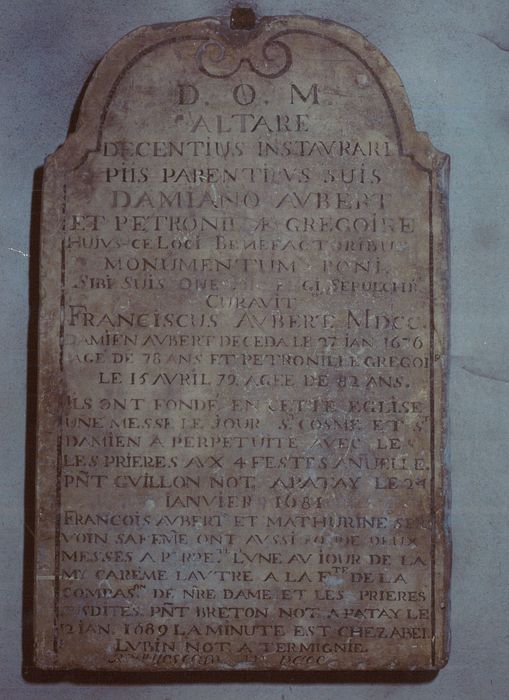 D. O. M.
ALTARE
DECENTIUS INSTAVRARI
PIIS PARENTIBVS SUIS
DAMIANO AVBERT
ET PETRONILLÆ GREGOIRE
HUIVSCE LOCI BENEFACTORIBUS
MONUMENTUM PONI,
SIBI SUIS QUE
CURAVIT
FRANCISCUS AVBERT MDCC.
DAMIEN AVBERT DECEDA LE 27 IAN 1676
AGE DE 78 ANS ET PETRONILLE GREGOI
LE 15 AVRIL 79 AGEE DE 82 ANS.
ILS ONT FONDÉ EN CETTE EGLISE
UNE MESSE LE JOUR St COSME ET St
DAMIEN A PERPETUITE AVEC LES
LES PRIERES AVX 4 FESTES ANUELLE
PÑT GVILLON NOT. A PATAY LE
IANVIER 1681
FRANCOIS AVBERT ET MATHURINE
VOIN SA FEME ONT AVSSI DEUX
MESSES A L'VNE AU IOUR DE LA
MY CARÉME LAVTRE A LA DE LA
COMPAS.on DE NRE DAME ET LES PRIERES
SUSDITES PÑT BRETON NOT A PATAY LE
12 IAN. 1689 LA MINUTE EST CHEZ ABEL
LVBIN NOT A TERMIGNIE